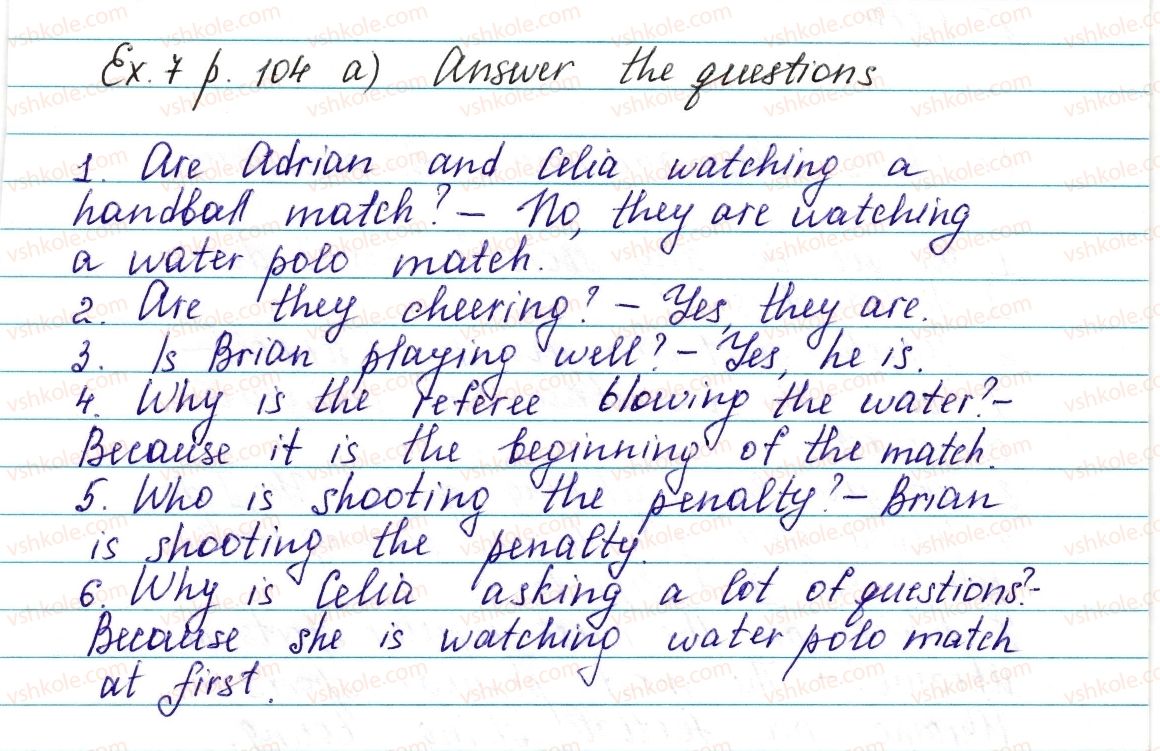 Ex. 7 p. 104 a) Answer the questions
1. Are Adrian and Celia watching a
handball match? – No, they are watching
a water polo match.
2. Are they cheering? – Yes, they are.
3. Is Brian playing well? – Yes, he is.
4. Why is the referee blowing the water? –
Because it is the beginning of the match.
5. Who is shooting the penalty? – Brian
is shooting the penalty.
6. Why is Celia asking a lot of questions? –
Because she is watching water polo match
at first.